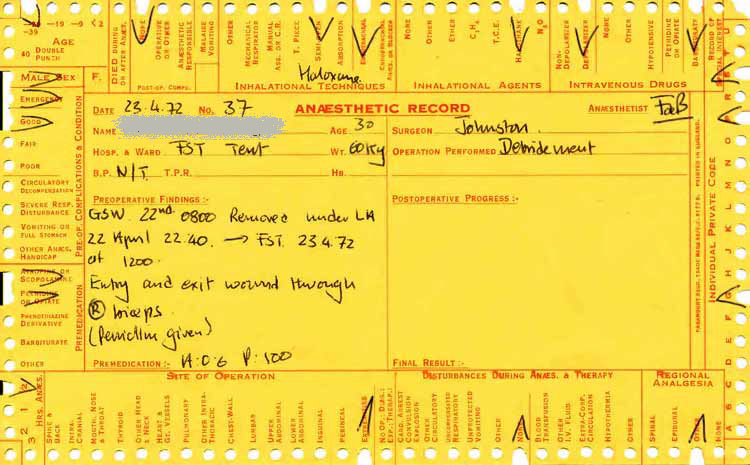 -39 -19 -9 <2
AGE
40 DOUBLE PUNCH
DIED DURING OR AFTER ANÆS.
NONE
OPERATIVE OR OTHER
ANÆSTHETIC RESPONSIBLE
MALAISE VOMITING
OTHER
MECHANICAL RESPIRATOR
MANUAL ASS. OR C.R.
T. PIECE
ABSORPTION
NONE
OTHER
ETHER
C₂H₄
T.C.E.
HALOTHANE
N₂O
NON-DEPOLARIZER
DEPOLARIZER
OTHER
HYPOTENSIVE
PETHIDINE OR OPIATE
BARBITURATE
RECORD OF SPECIAL INTEREST
Haloxane
MALE SEX F.
POST-OP. COMPL.
INHALATIONAL TECHNIQUES
INHALATIONAL AGENTS
INTRAVENOUS DRUGS
EMERGENCY
GOOD
FAIR
POOR
CIRCULATORY DECOMPENSATION
SEVERE RESP. DISTURBANCE
VOMITING OR FULL STOMACH
OTHER ANÆS. HANDICAP
PRE-OP. COMPLICATIONS & CONDITION
ATROPINE OR SCOPOLAMINE
PETHIDINE OR OPIATE
PHENOTHIAZINE DERIVATIVE
BARBITURATE
OTHER
PREMEDICATION
DATE 23.4.72 NO. 37 ANÆSTHETIC RECORD ANÆSTHETIST
NAME AGE 30 SURGEON Johnston.
HOSP. & WARD FST Tent WT. 60Kg OPERATION PERFORMED Debridement
B.P. N/T T.P.R. HB.
PREOPERATIVE FINDINGS :-
GSW. 22nd. 0800 Removed under LA
22 April 22.40. → FST. 23 4.72
at 1200.
Entry and exit wound through
Ⓡ biceps.
(Penicillin given)
PREMEDICATION :- A:0.6 P:100
POSTOPERATIVE PROGRESS :-
FINAL RESULT :-
PRINTED IN ENGLAND.
INDIVIDUAL PRIVATE CODE
3 2 1 2
HRS. ANÆS.
SITE OF OPERATION
SPINE & BACK
INTRA-CRANIAL
MOUTH, NOSE & THROAT
THYROID
OTHER HEAD & NECK
HEART & GT. VESSELS
PULMONARY
OTHER INTRA-THORACIC
CHEST-WALL
LUMBAR
UPPER ABDOMINAL
LOWER ABDOMINAL
INGUINAL
PERINEAL
EXTREMITIES
DISTURBANCES DURING ANÆS. & THERAPY
NO OF DIAG. EXP.:THERAP.:
CARD. ARREST
CONVULSION EXPLOSION
OTHER CIRCULATORY
UNDEPRESSED RESPIRATORY
UNPROTECTED VOMITING
OTHER
NONE
BLOOD TRANSFUSION
OTHER I.V. FLUID
EXTRA-CORP. CIRCULATION
HYPOTHERMIA
OTHER
REGIONAL ANALGESIA
SPINAL
EPIDURAL
OTHER
NONE